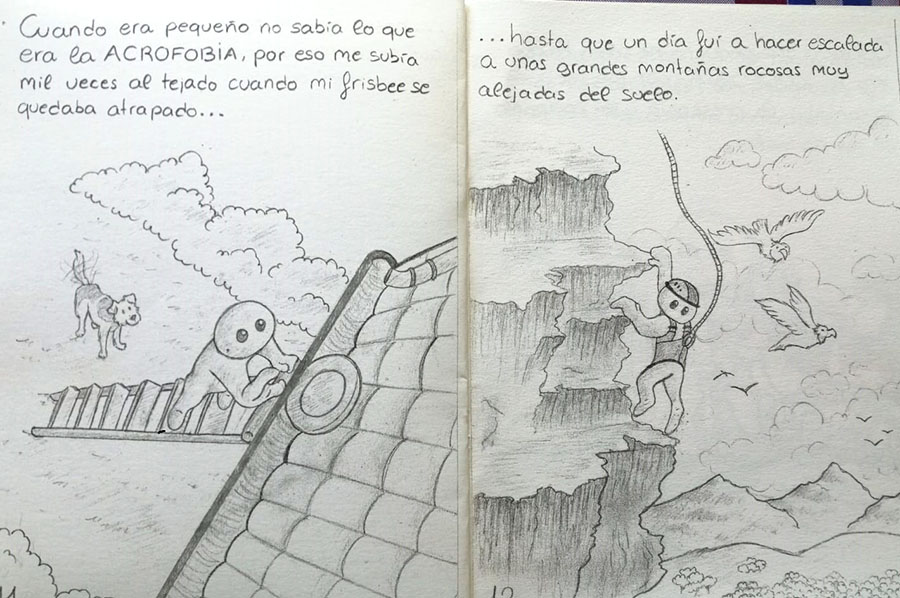 Cuando era pequeño no sabía lo que
era la ACROFOBIA, por eso me subía
mil veces al tejado cuando mi frisbee se
quedaba atrapado...
...hasta que un día fui a hacer escalada
a unas grandes montañas rocosas muy
alejadas del suelo.